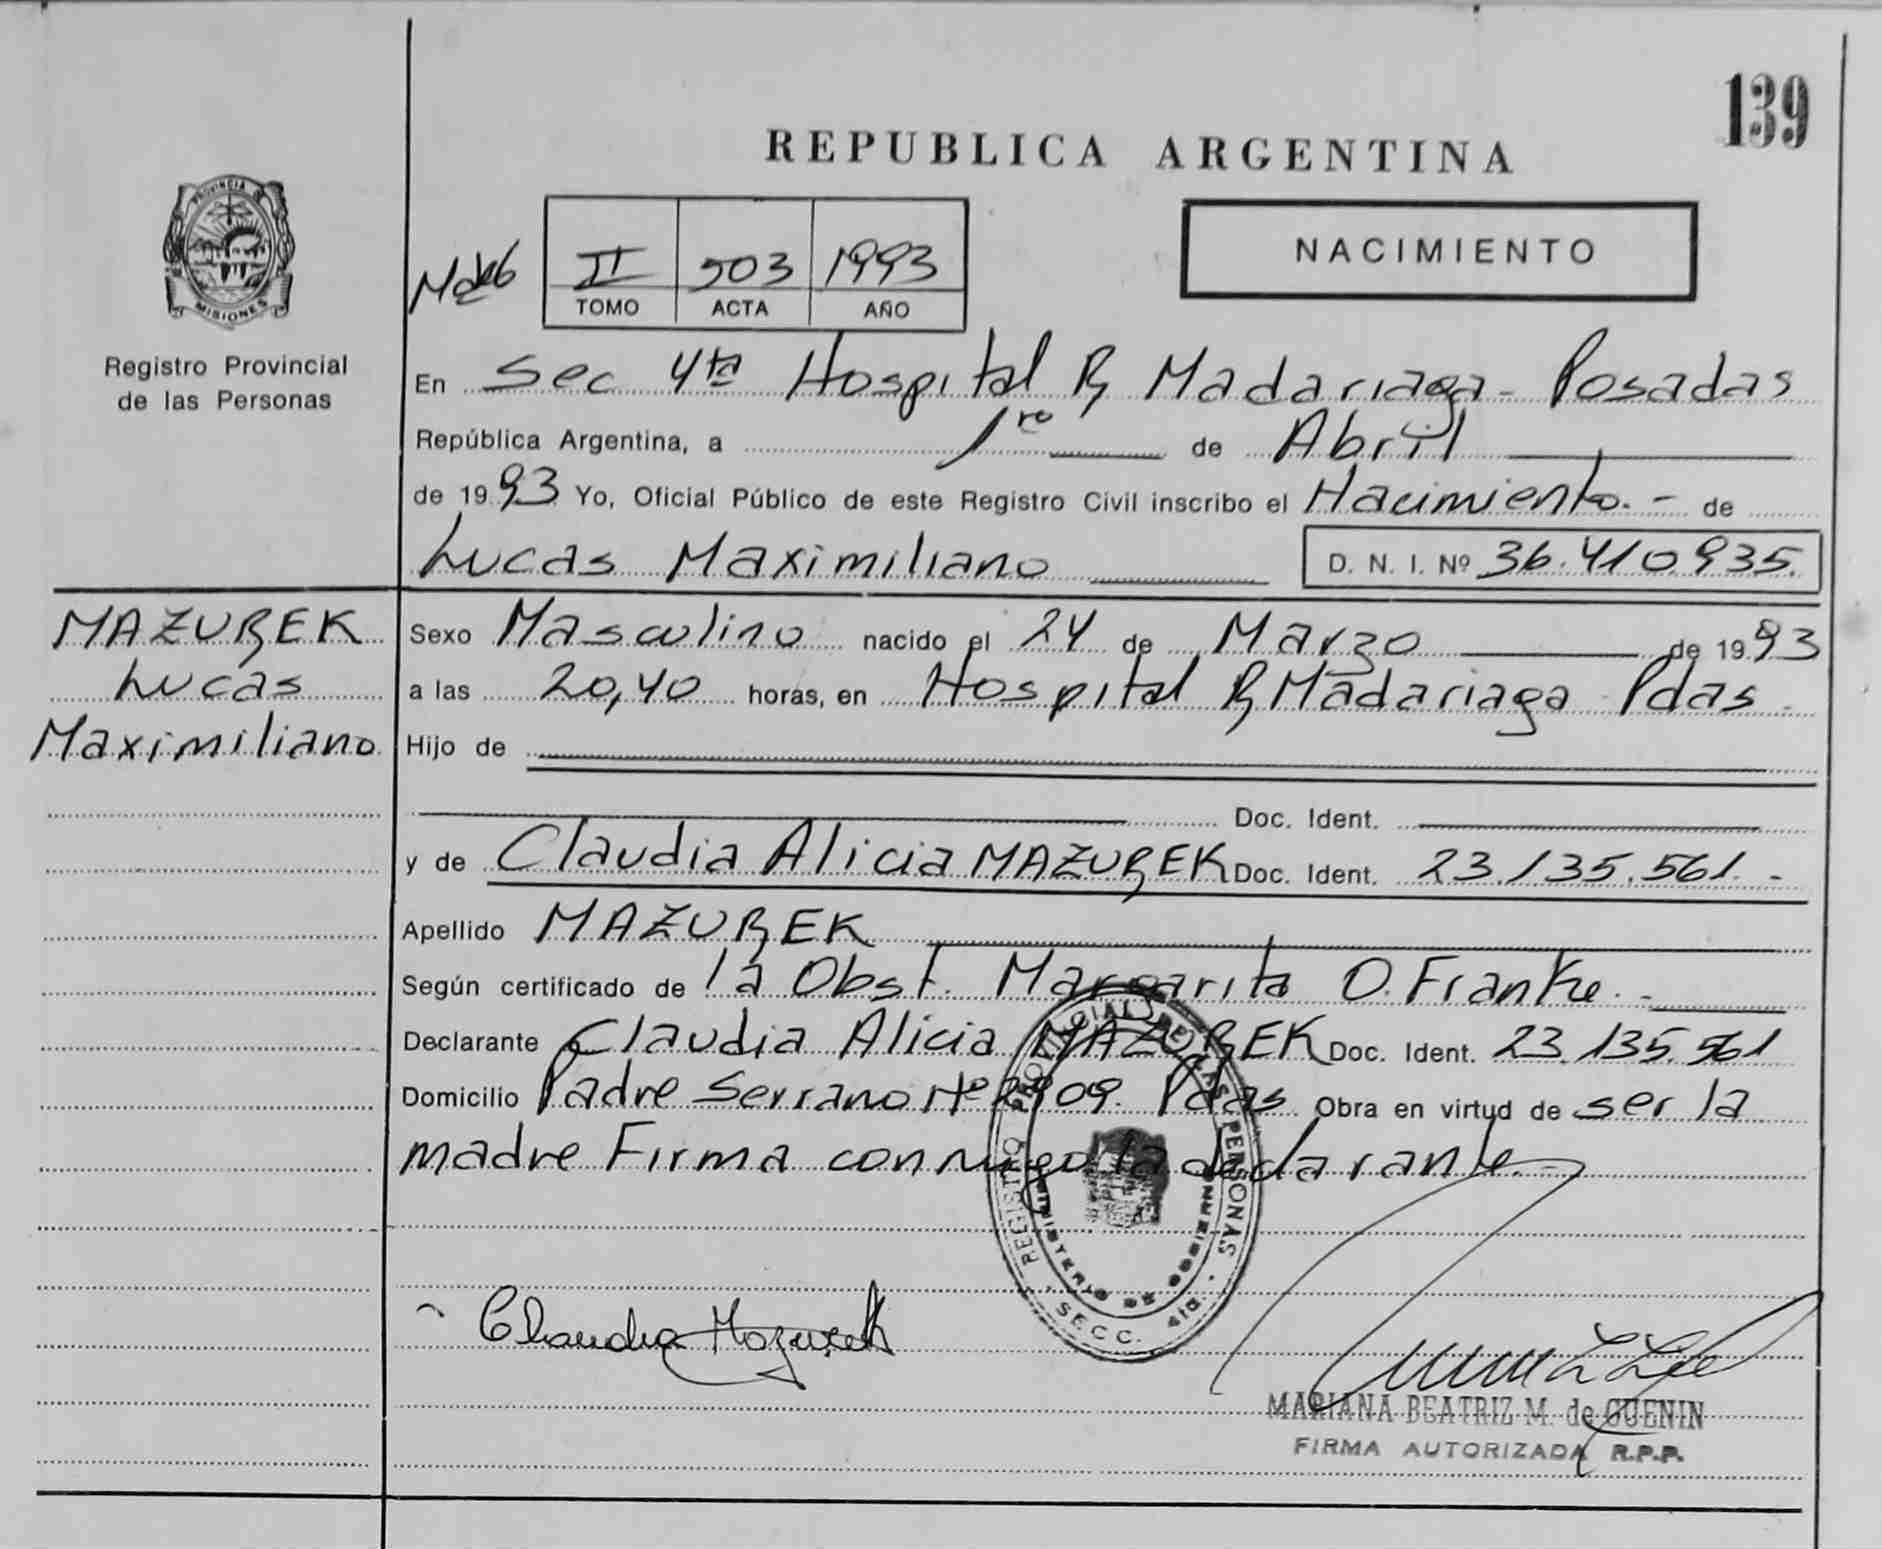 139
REPUBLICA ARGENTINA
PROVINCIA DE
MISIONES
Registro Provincial
de las Personas
II 503 1993
TOMO ACTA AÑO
NACIMIENTO
En Sec 4ta Hospital R Madariaga - Posadas
República Argentina, a 1ro de Abril
de 1993 Yo, Oficial Público de este Registro Civil inscribo el Nacimiento.- de
Lucas Maximiliano D. N. I. Nº 36.410.935.
MAZUREK
Lucas
Maximiliano
Sexo Masculino nacido el 24 de Marzo de 1993
a las 20,40 horas, en Hospital R Madariaga Pdas -
Hijo de
Doc. Ident.
y de Claudia Alicia MAZUREK Doc. Ident. 23.135.561.-
Apellido MAZUREK
Según certificado de la Obst. Margarita O. Franke.-
Declarante Claudia Alicia MAZUREK Doc. Ident. 23.135.561
Domicilio Padre Serrano Nº 2909. Pdas Obra en virtud de ser la
madre Firma conmigo la declarante.-
REGISTRO PROVINCIAL DE LAS PERSONAS
MINISTERIO DE GOBIERNO
SECC. 4ta.
Claudia Mazurek
MARIANA BEATRIZ M. de GUENIN
FIRMA AUTORIZADA R.P.P.